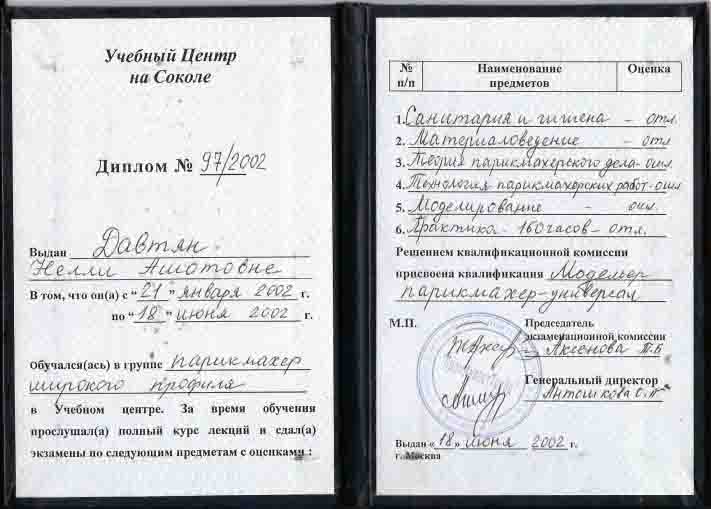 Учебный Центр
на Соколе
Диплом № 97/2002
Выдан Давтян
Нелли Ашотовне
В том, что он(а) с “ 21 ” января 2002 г.
по “ 18 ” июня 2002 г.
Обучался(ась) в группе парикмахер
широкого профиля
в Учебном центре. За время обучения
прослушал(а) полный курс лекций и сдал(а)
экзамены по следующим предметам с оценками :
№ п/п Наименование предметов Оценка
1. Санитария и гигиена - отл.
2. Материаловедение - отл
3. Теория парикмахерского дела - отл.
4. Технология парикмахерских работ - отл
5. Моделирование - отл.
6. Практика - 160 часов - отл.
Решением квалификационной комиссии
присвоена квалификация Модельер
парикмахер-универсал
М.П. Председатель
экзаменационной комиссии
Аксенова Т.Б
Генеральный директор
Антошкова С.П
Выдан « 18 » июня 2002 г.
г. Москва